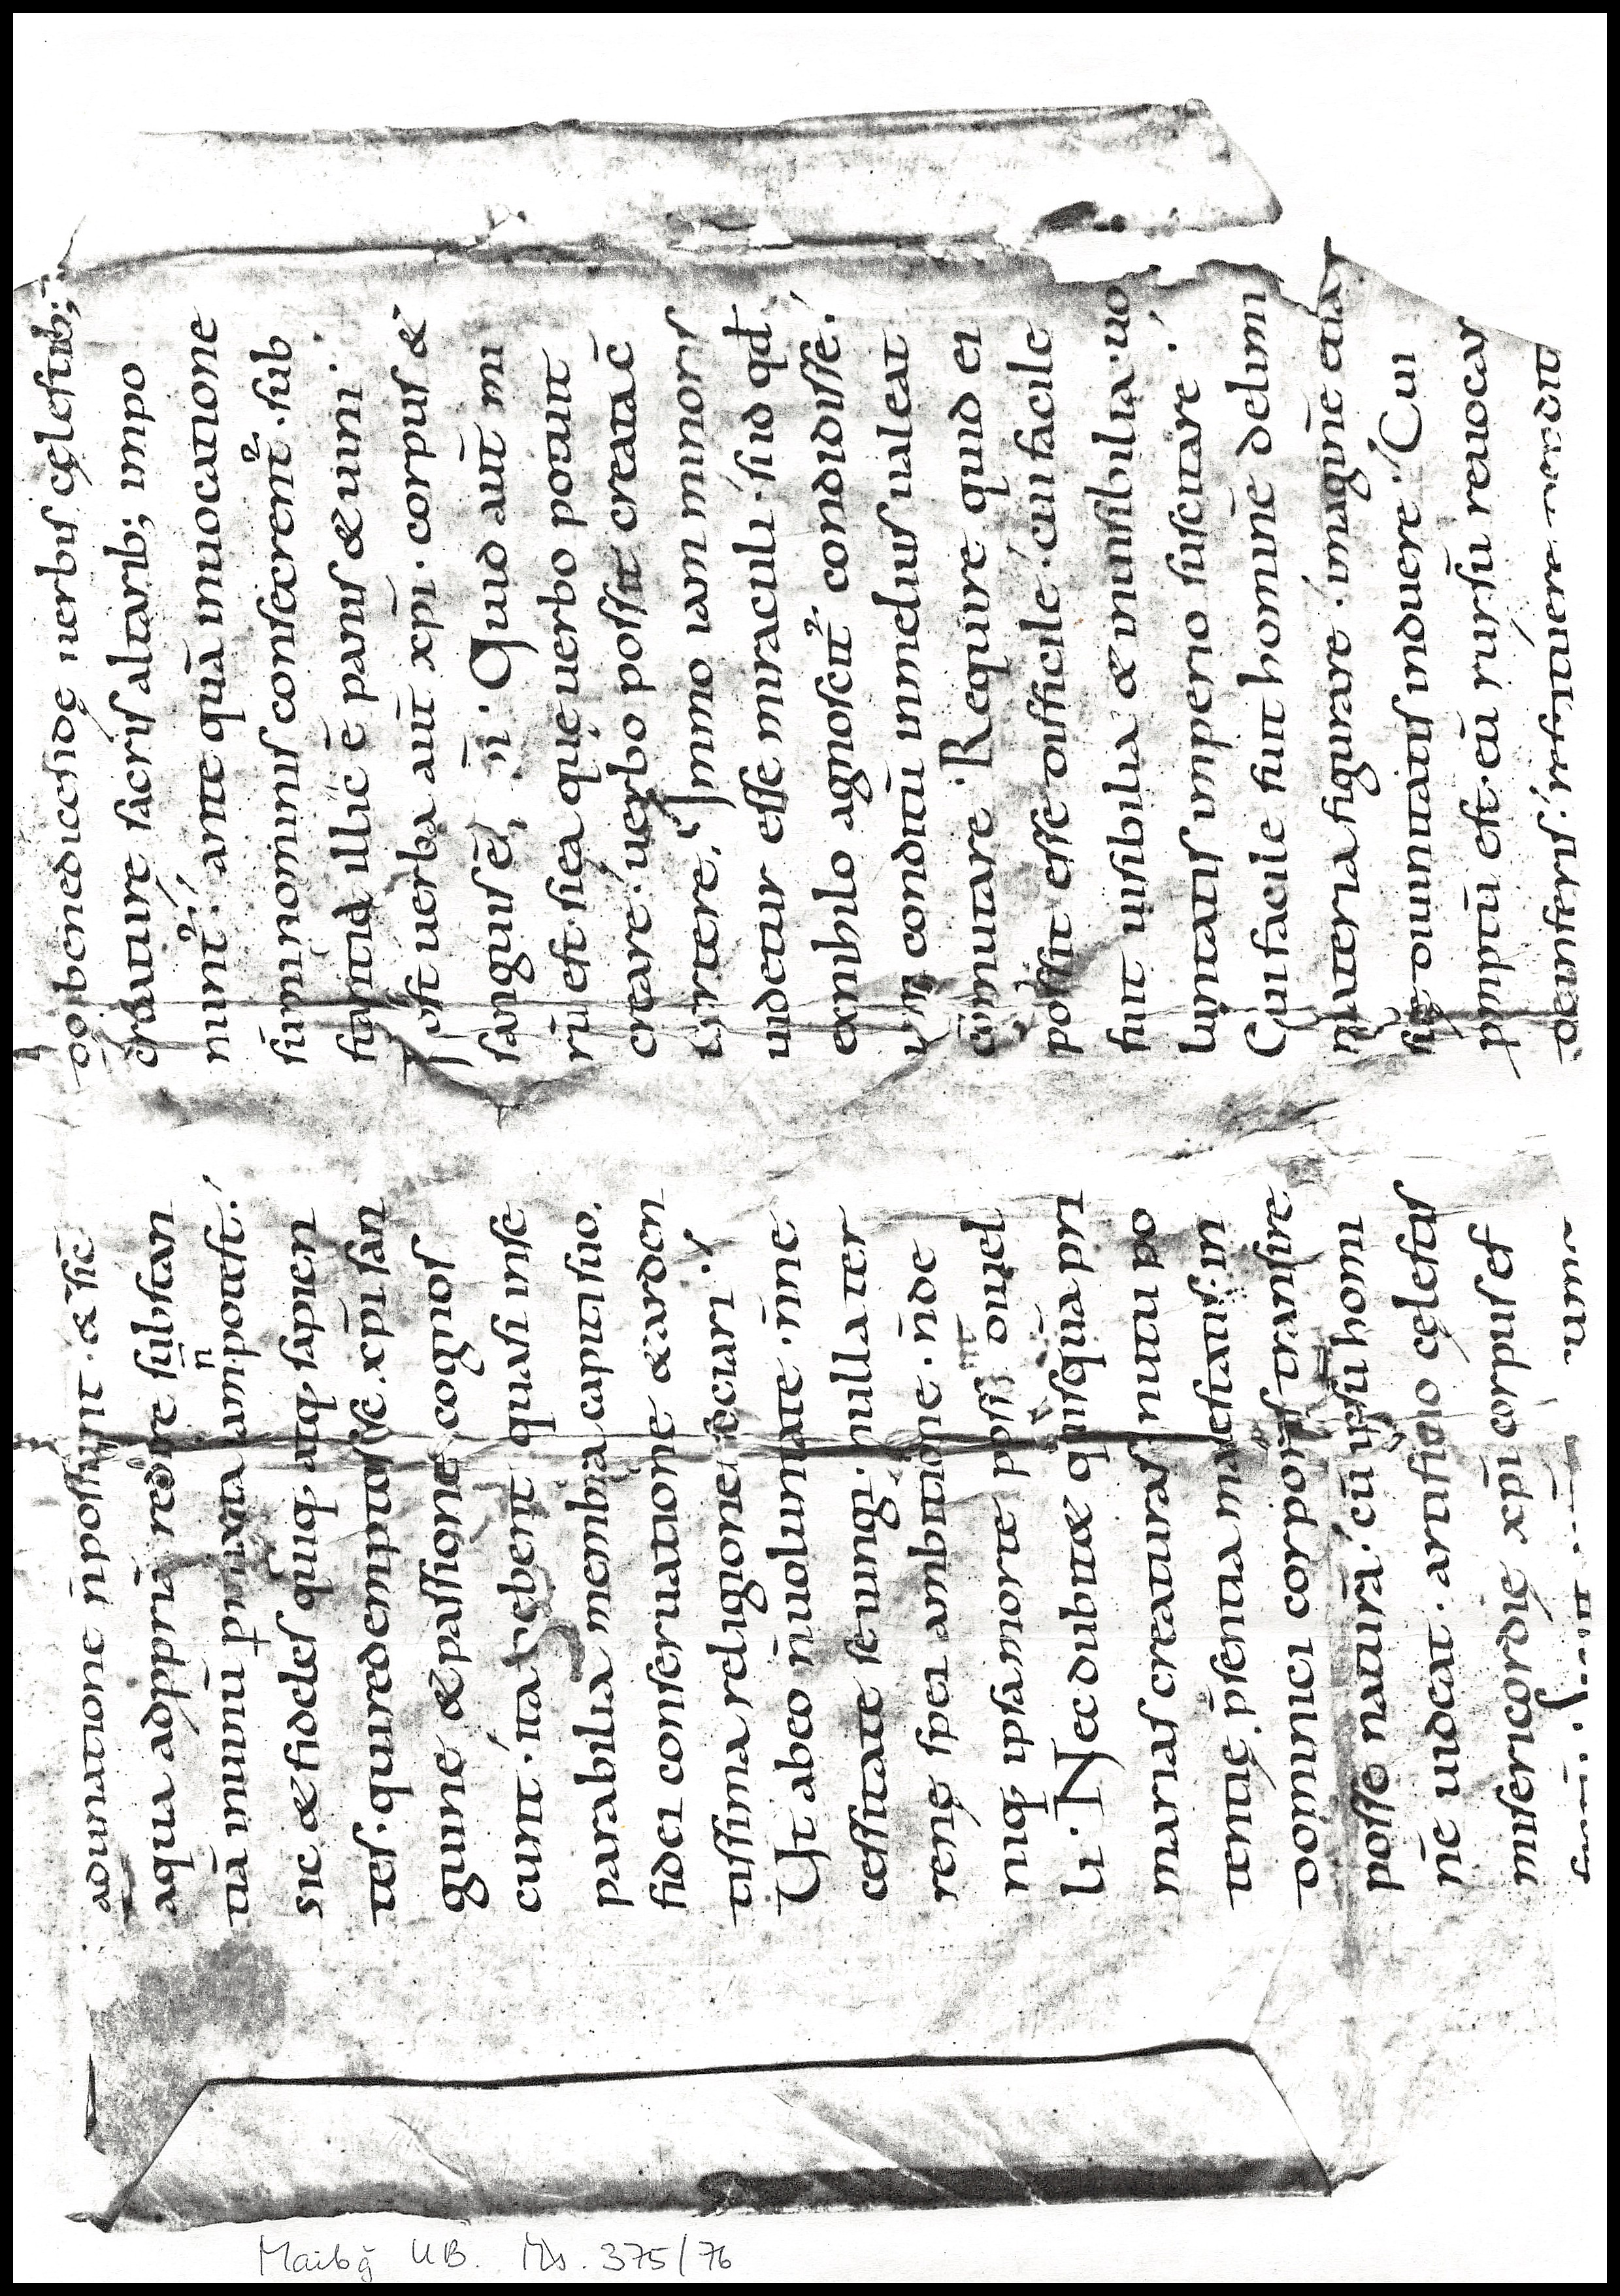 adunatione n̄ possunt · & sic ē
aqua adppriā redire substan
tiā inuinū p mixta am n potest.
sic & fideles quiq; atq; sapien
tes · qui redemptos se xp̄i san
guine & passione cognos
cunt · ita debent quasi inse
parabilia membra capiti suo.
fidei conseruatione & arden
tissima religione sociari.
Ut ab eo n̄ uoluntate · n̄ ne
cessitate seiungi · nulla ter
renę spei ambitione · n̄ de
niq; ipsa morte possit diuel
li · Nec dubitet quisquā pri
marias creaturas nutu po
tentię p̄sentia maiestatis · in
dominici corporis transire
posse naturā · cū ipsū homi
nē uideat · artificio cęlestis
misericordię xp̄i corpus ef
do benedicendę uerbis cęlestib;
creaturę sacris altarib; impo
nunt᷑ · ante quā inuocatione
sūmi nominis consecrent᷑ · sub
stantia illic ē panis & uini ·
Post uerba aut̄ xp̄i · corpus &
sanguis ē xp̄i · Quid aut̄ mi
rū est · si ea quę uerbo potuit
creare · uerbo possit creata cō
uertere. Immo iam minoris
uidetur esse miraculi · si id qd̄
ex nihilo agnoscit᷑ condidisse.
iam conditū in melius ualeat
cōmutare · Require quid ei
possit esse difficile · cui facile
fuit uisibilia & inuisibilia · uo
luntatis imperio suscitare.
Cui facile fuit hominē de limi
materia figurare · imaginē etiā
suę diuinitatis induere · Cui
pmptū est · eū rursū reuocar
de inferis ·
Maibg UB. Ms. 375/76